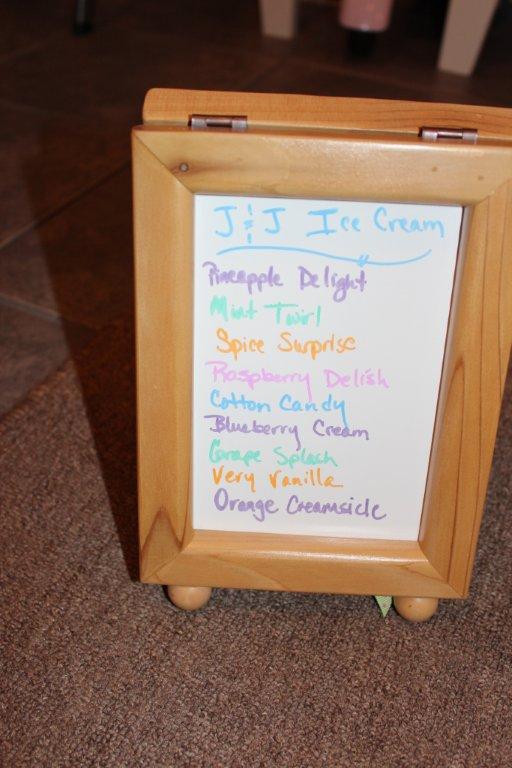 J & J Ice Cream
Pineapple Delight
Mint Twirl
Spice Surprise
Raspberry Delish
Cotton Candy
Blueberry Cream
Grape Splash
Very Vanilla
Orange Creamsicle